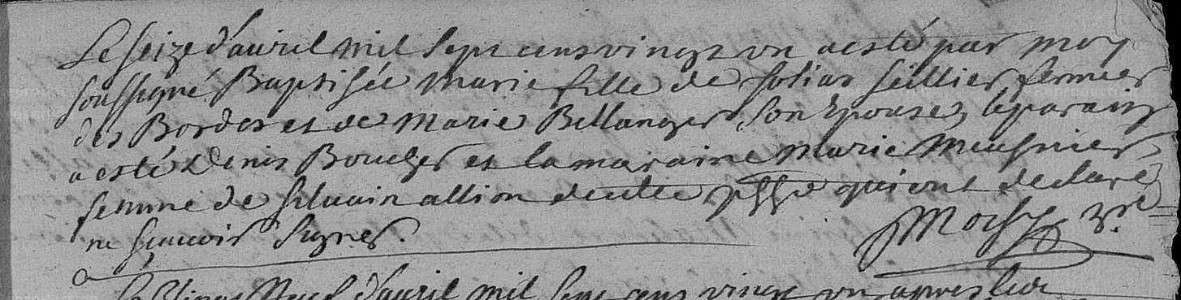 Le seize d'auril mil sept cens vingt un a esté par moy
soussigné Baptisée Marie fille de sellier fermier
des Bordes et de Marie Bellanger son Epouse, le parain
a esté Denis Boucher et la maraine Marie Meusnier
femme de siluain allion de cette psse qui ont declare
ne scauoir signer.
Le vingt neuf d'auril mil sept cens vingt un apres